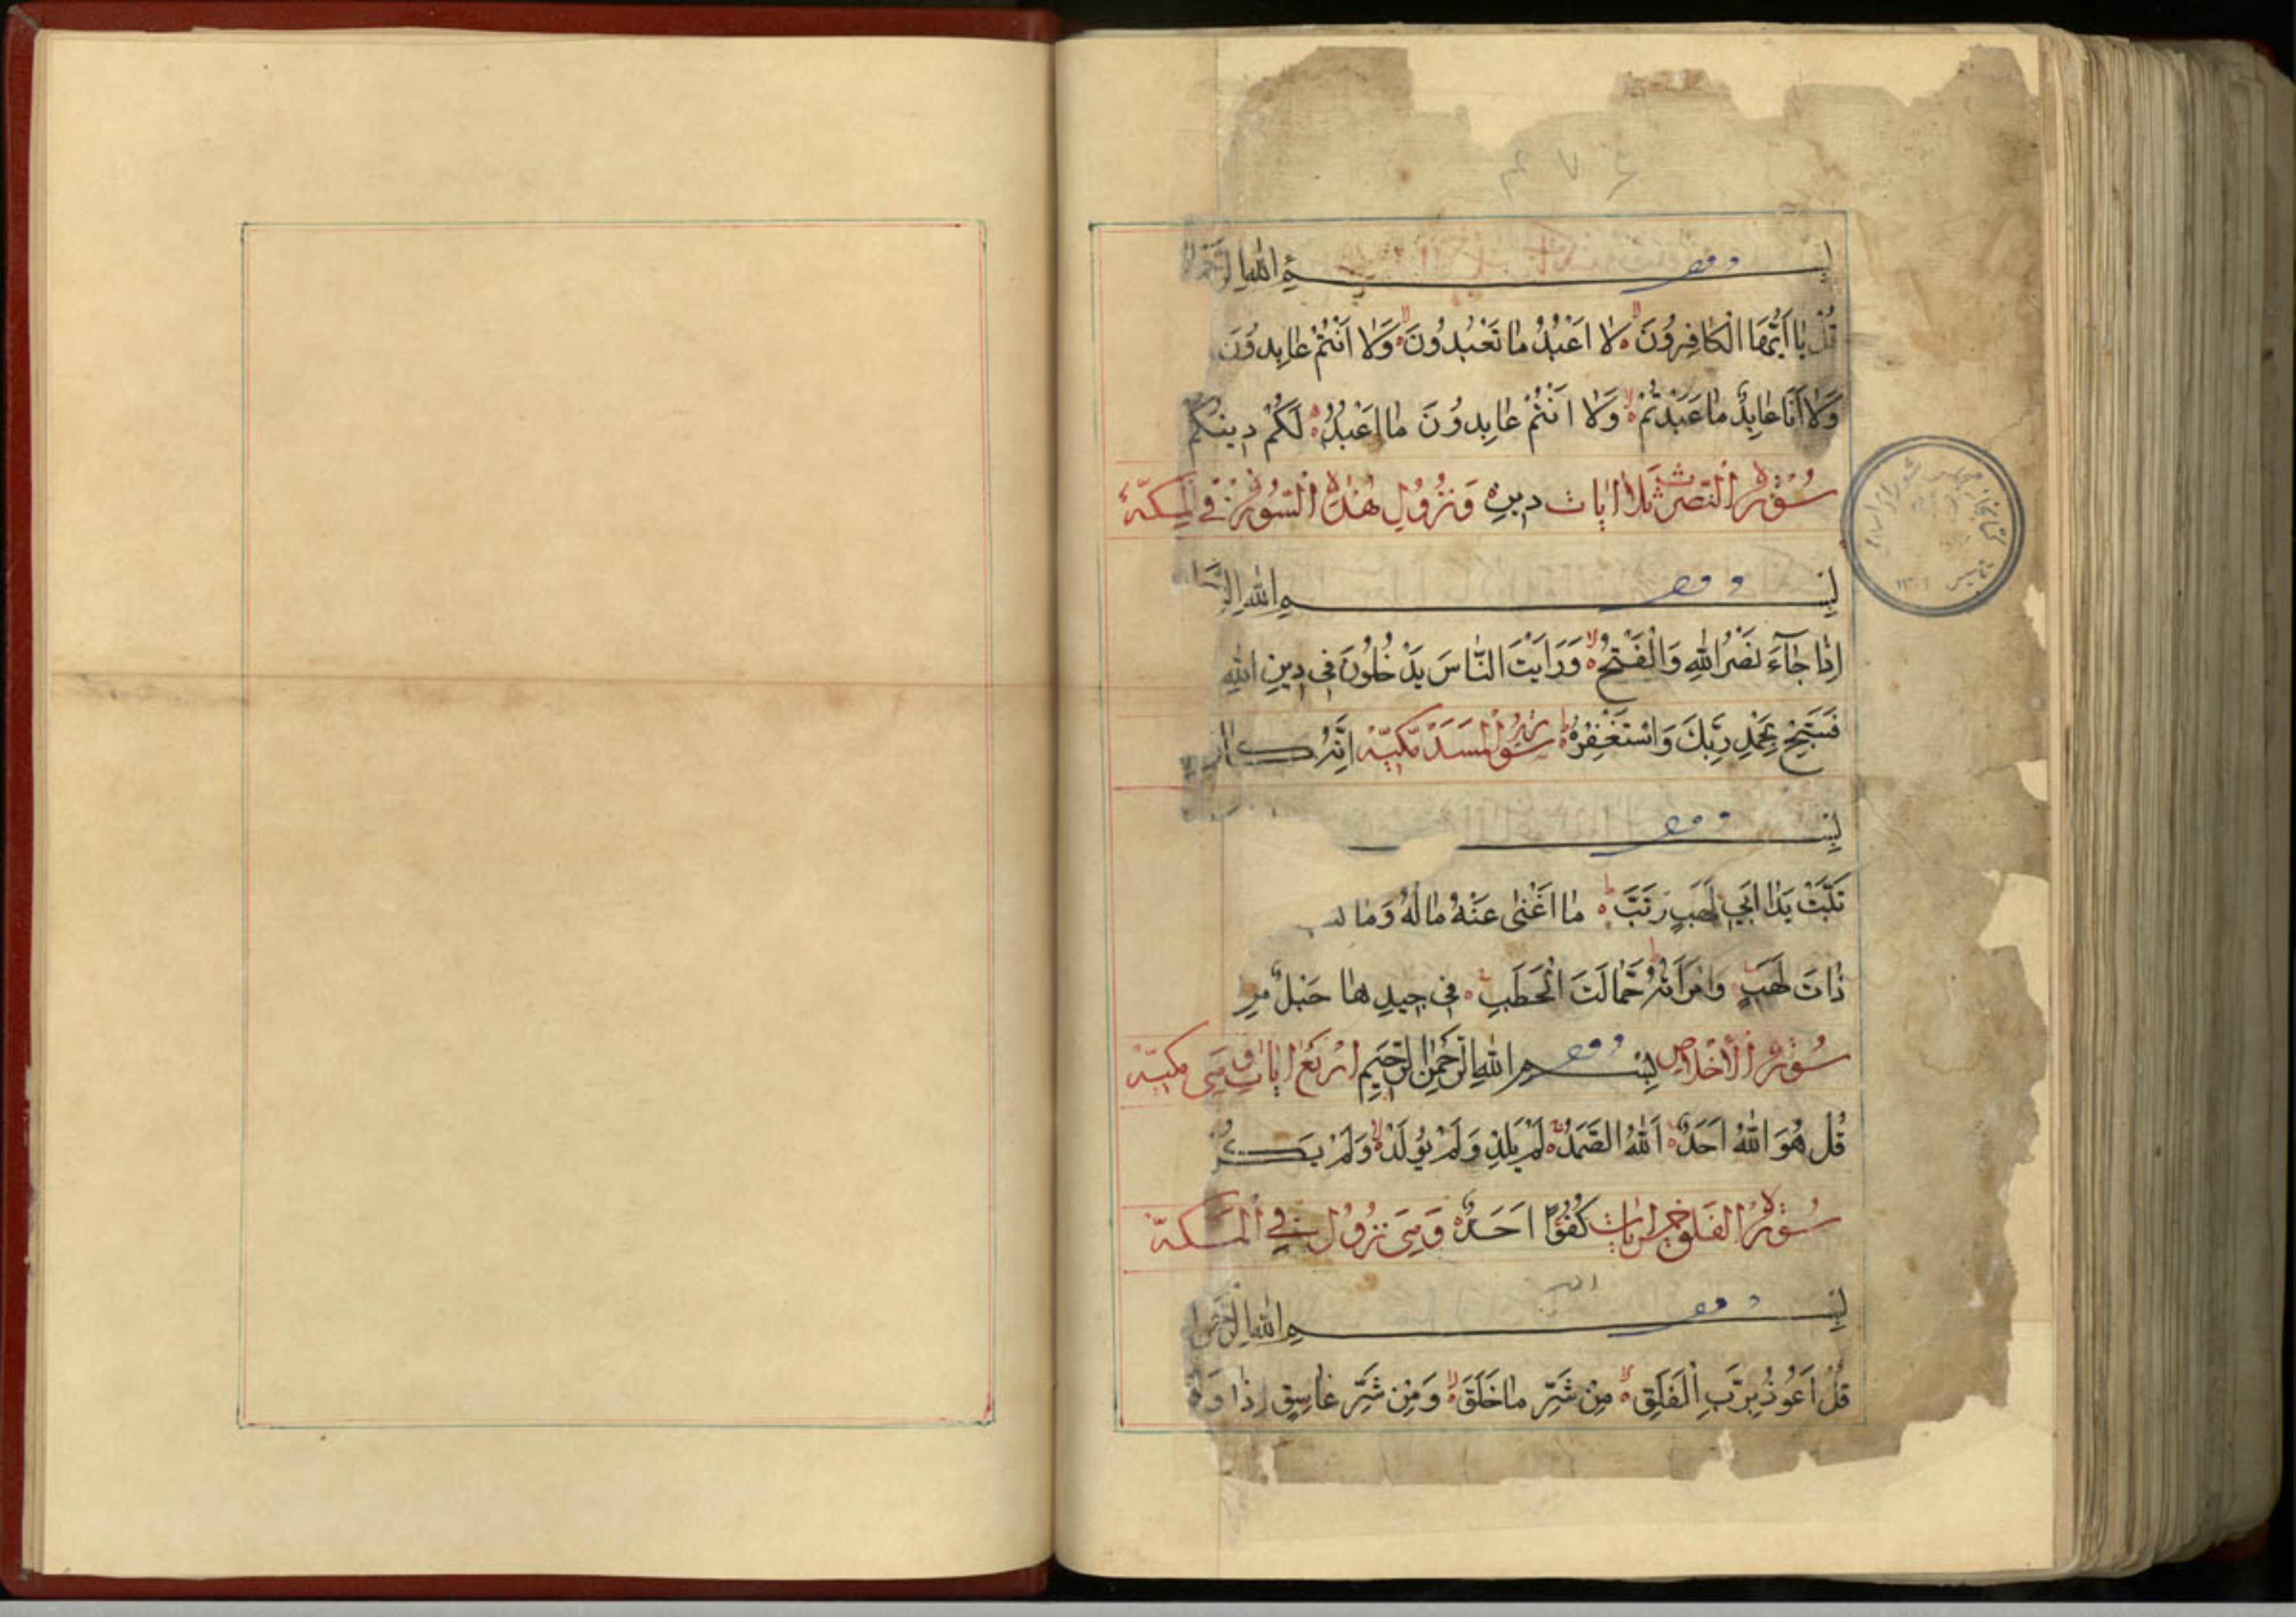 بسم الله الرحمن
قُلْ يَا أَيُّهَا الْكَافِرُونَ لَا أَعْبُدُ مَا تَعْبُدُونَ وَلَا أَنْتُمْ عَابِدُونَ
وَلَا أَنَا عَابِدٌ مَا عَبَدْتُمْ وَلَا أَنْتُمْ عَابِدُونَ مَا أَعْبُدُ لَكُمْ دِينُكُمْ
سورة النصر ثلاث ايات دين و نزول هذه السورة في المكة
بسم الله
إِذَا جَآءَ نَصْرُ اللهِ وَالْفَتْحُ وَرَأَيْتَ النَّاسَ يَدْخُلُونَ فِي دِينِ اللهِ
فَسَبِّحْ بِحَمْدِ رَبِّكَ وَاسْتَغْفِرْهُ سورة المسد مكية إِنَّهُ كان
بس
تَبَّتْ يَدَا أَبِي لَهَبٍ وَتَبَّ مَا أَغْنَى عَنْهُ مَالُهُ وَمَا
ذَاتَ لَهَبٍ وَامْرَأَتُهُ حَمَّالَتَ الْحَطَبِ فِي جِيدِهَا حَبْلٌ مِنْ
سورة الاخلاص بسم الله الرحمن الرحيم اربع ايات و هي مكية
قُلْ هُوَ اللهُ أَحَدٌ اَللهُ الصَّمَدُ لَمْ يَلِدْ وَلَمْ يُولَدْ وَلَمْ يَكُنْ
سورة الفلق خمس ايات كُفُوًا أَحَدٌ وهي نزول في المكة
بسم الله الرحمن
قُلْ أَعُوذُ بِرَبِّ الْفَلَقِ مِنْ شَرِّ مَا خَلَقَ وَمِنْ شَرِّ غَاسِقٍ إِذَا وَقَ